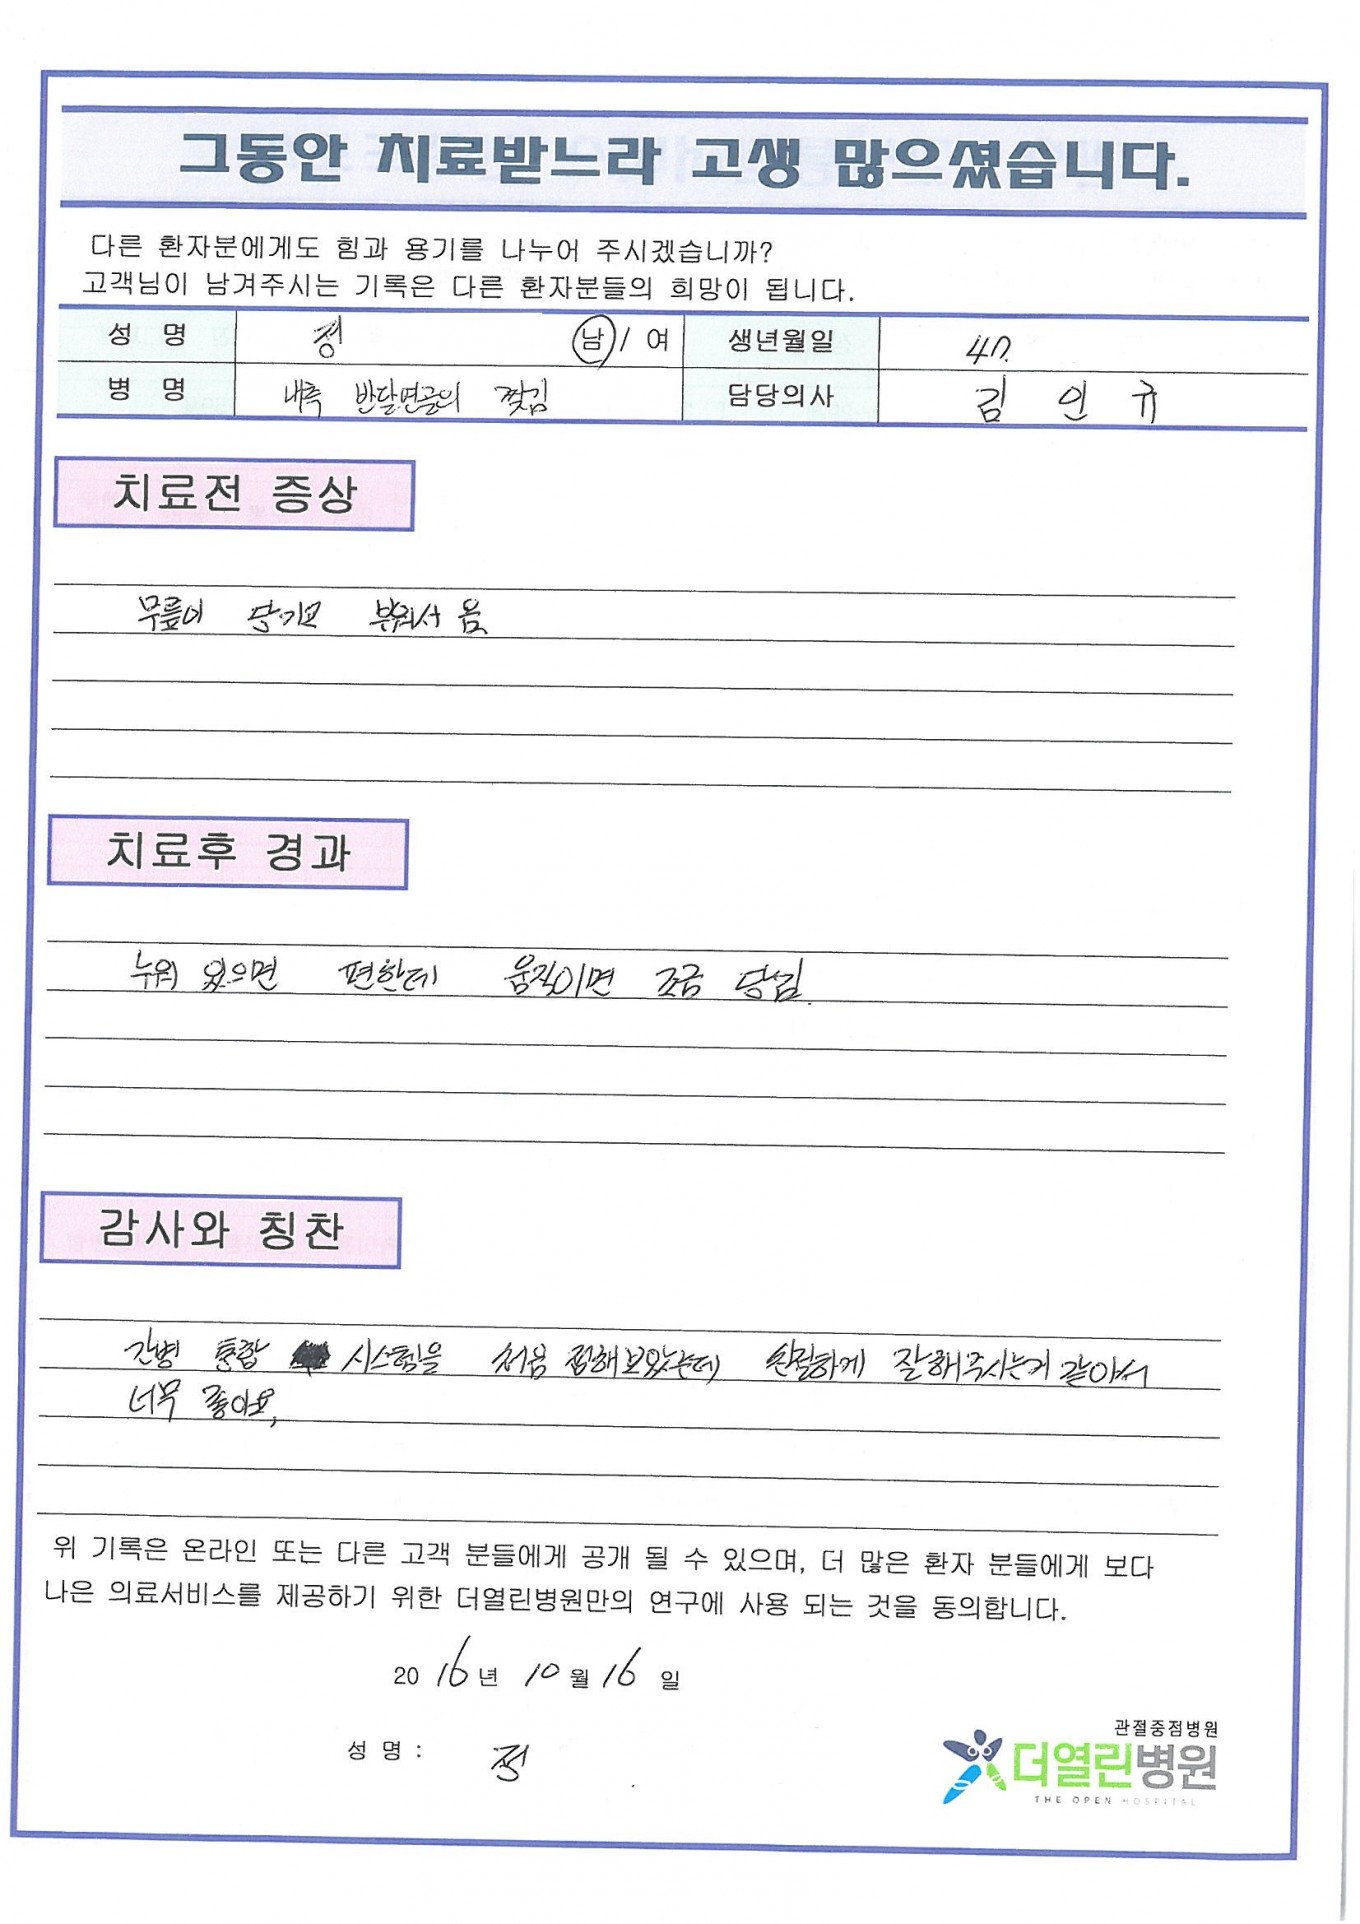 그동안 치료받느라 고생 많으셨습니다.
다른 환자분에게도 힘과 용기를 나누어 주시겠습니까?
고객님이 남겨주시는 기록은 다른 환자분들의 희망이 됩니다.
성 명 정 남 / 여 생년월일 47.
병 명 내측 반달연골의 찢김 담당의사 김 인 규
치료전 증상
무릎이 당기고 부워서 옴
치료후 경과
누워 있으면 편한데 움직이면 조금 당김.
감사와 칭찬
간병 통합 시스템을 처음 접해보았는데 친절하게 잘해주시는거 같아서
너무 좋아요,
위 기록은 온라인 또는 다른 고객 분들에게 공개 될 수 있으며, 더 많은 환자 분들에게 보다
나은 의료서비스를 제공하기 위한 더열린병원만의 연구에 사용 되는 것을 동의합니다.
2016년 10월 16일
성 명 : 정
관절중점병원
더열린병원
THE OPEN HOSPITAL